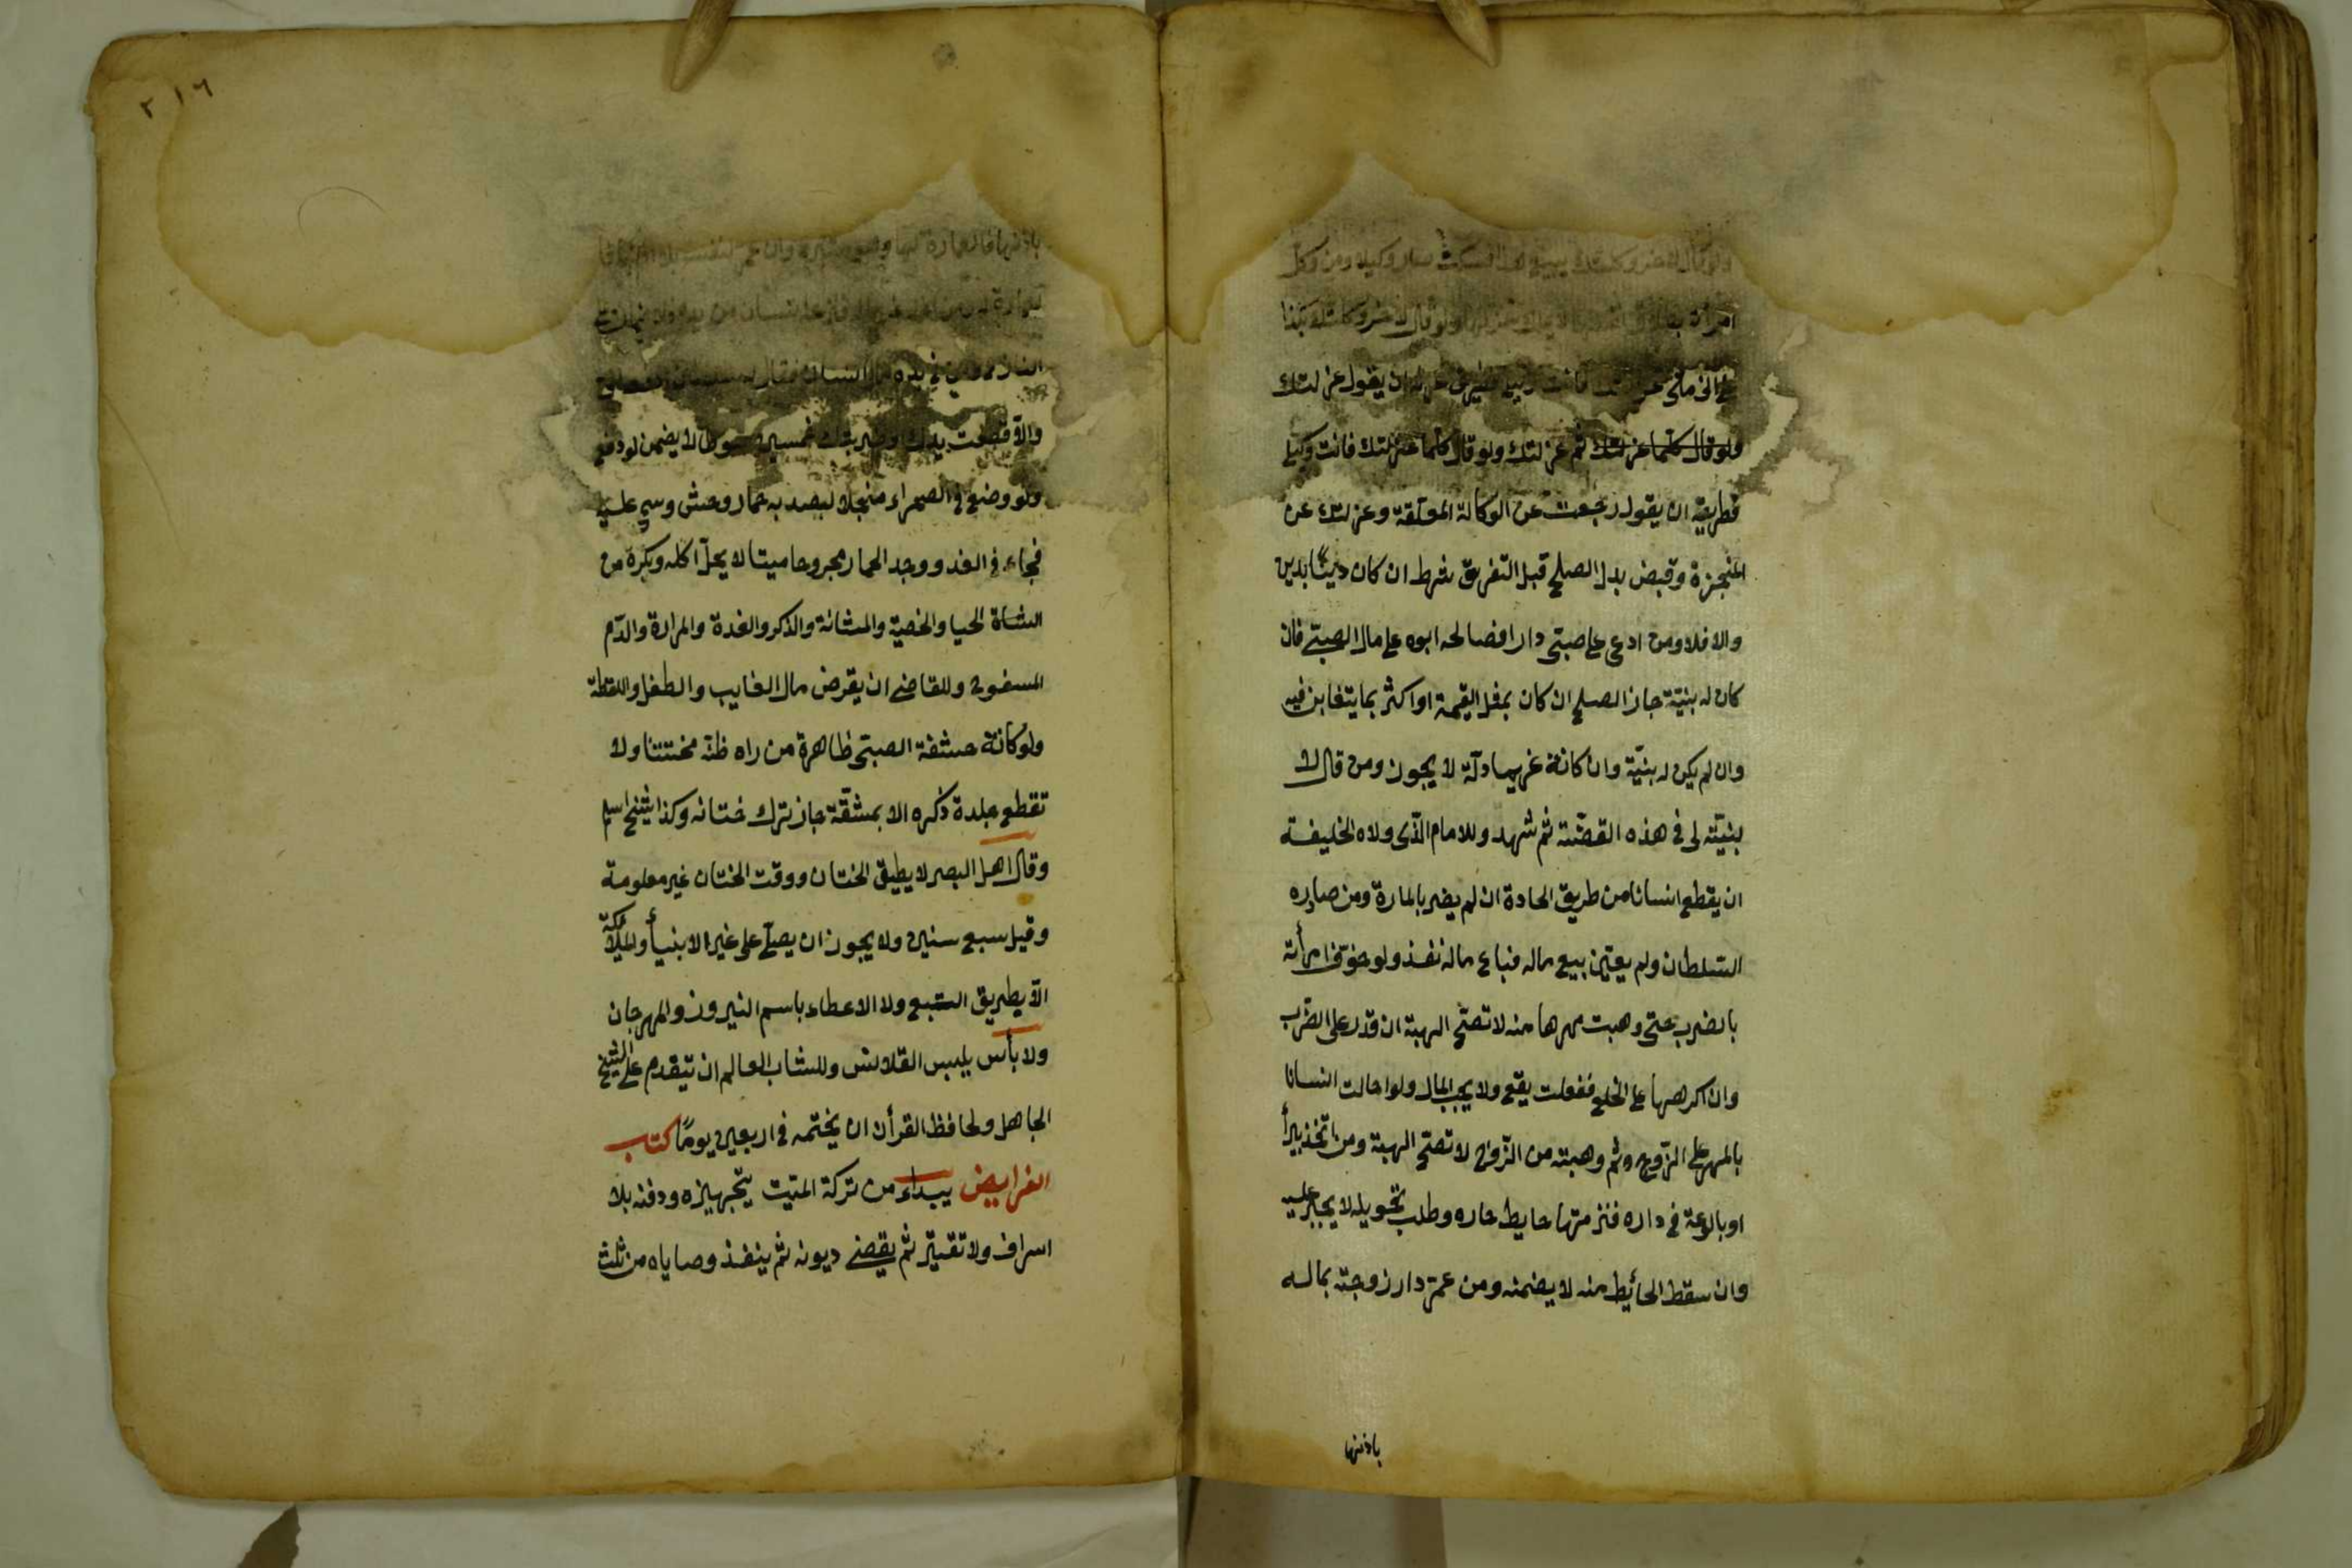 ولو قال لاخر وكلتك ببيع هذا فسكت صار وكيلا ومن وكل
امرأته بطلاق نفسها لا يملك عزلها ولو قال لاخر وكلتك بكذا
على انى متى عزلتك فانت وكيلى عزله ان يقول عزلتك
ولو قال كلما عزلتك ثم عزلتك ولو قال كلما عزلتك فانت وكيلى
فطريقة ان يقول رجعت عن الوكالة المعلقة وعزلتك عن
المنجزة وقبض بدل الصلح قبل التفريق شرط ان كان دينًا بدين
والا فلا ومن ادعى على صبىّ دارا فصالحه ابوه على مال الصبىّ فان
كان له بنيّة جاز الصلح ان كان بمثل القيمة او اكثر بما يتغابن فيه
وان لم يكن له بنيّة وان كانة غير عادلة لا يجوز ومن قال لا
بنيّته لى فى هذه القصّة ثم شهد وللامام الذّى ولاه الخليفة
ان يقطع انسانا من طريق الجادة ان لم يضر بالمارة ومن صادره
السّلطان ولم يعيّن بيع ماله فباع ماله نفذ ولو خوّف امرأته
بالضرب حتى وهبت مهرها منه لا تصحّ الهبة ان قدر على الضّرب
وان اكرهها على الخلع ففعلت يقع ولا يجب المال ولو احالت انسانا
بالمهر على الزّوج ثم وهبته من الزّوج لا تصحّ الهبة ومن اتّخذ بيرأ
او بالوعة فى داره فنز منها حايط جاره وطلب تحويله لا يجبر عليه
وان سقط الحأيط منه لا يضمنه ومن عمّر دار زوجته بماله
باذنها
٢١٦
باذنها فالعمارة لها والنفقة عليها وان عمر لنفسه بلا اذنها
فالعمارة له ومن اخذ غريما فنزعه انسان من يده ولا ضمان على
النازع ومن فى يده مال انسان فقال له سلطان
والّا قطعت يدك او ضربتك خمسين سوطا لا يضمن لو دفع
ولو وضع فى الصحراء منجلا ليصيد به حمار وحش وسمى عليه
فجاء فى الغد ووجد الحمار مجروحا ميتا لا يحلّ اكله ويكره من
الشاة الحيا والخصية والمثانة والذكر والغدة والمرارة والدّم
المسفوح وللقاضى ان يقرض مال الغايب والطفل واللقطة
ولو كانة حشفة الصبىّ ظاهرة من راه ظنّه مختتنا ولا
تقطع جلدة ذكره الا بمشقّة جاز ترك ختانه وكذا شيخ اسلم
وقال اهل البصر لا يطيق الختان ووقت الختان غير معلومة
وقيل سبع سنين ولا يجوز ان يصلّى على غير الانبيأ والملأئكة
الّا بطريق التبع ولا الاعطاء باسم النيروز والمهرجان
ولا بأس بلبس القلانس وللشاب العالم ان يتقدم على الشيخ
الجاهل ولحافظ القرأن ان يختمه فى اربعين يومًا كتاب
الفرايض يبداء من تركة الميّت بتجهيزه ودفنه بلا
اسراف ولا تقتير ثم يقضى ديونه ثم ينفذ وصاياه من ثلث